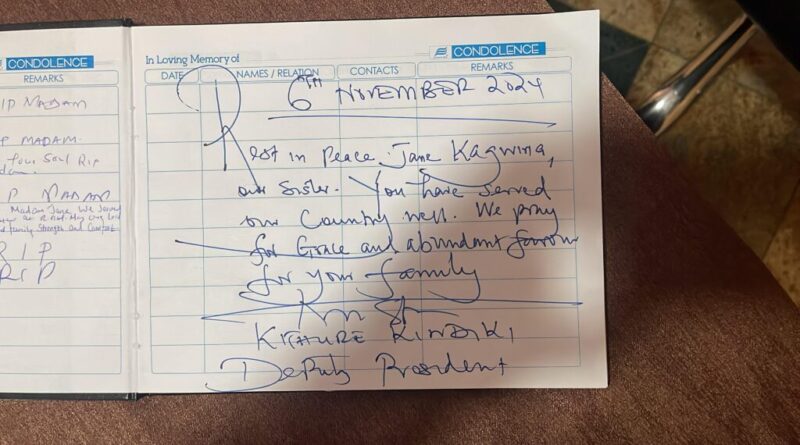 CONDOLENCE
REMARKS
IP MADAM
P MADAM.
Your Soul RIP
P MADAM
Madam Jane We Served
RIP
RIP
In Loving Memory of
CONDOLENCE
DATE NAMES / RELATION CONTACTS REMARKS
6TH NOVEMBER 2024
Rest in Peace Jane Kagwiria,
our Sister. You have served
our Country well. We pray
for Grace and abundant favour
for your family
KITHURE KINDIKI
Deputy President